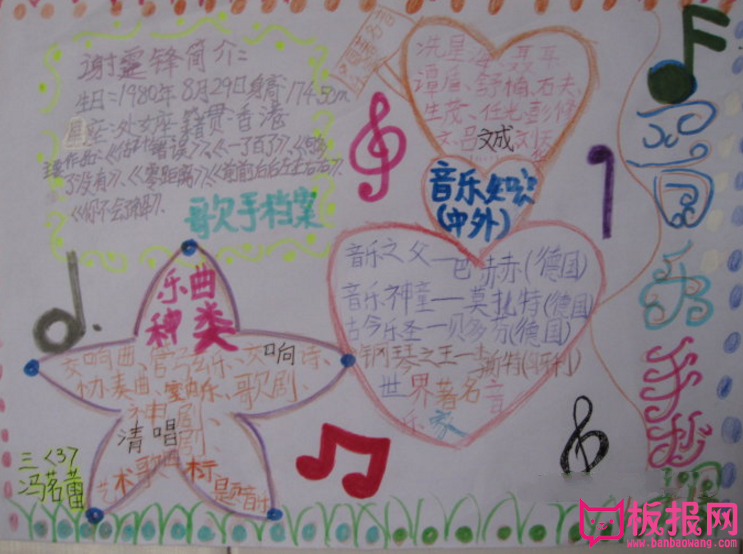 谢霆锋简介:
生日:1980年8月29日身高174.5cm
星座:处女座 籍贯:香港
《估计错误》、《一了百了》、
了没有》、《零距离》、《前前后后左左右右》、
《你不会了解》、
歌手档案
冼星海、聂耳
谭盾、舒楠、石夫、
生茂、任光、彭修
文、吕文成、刘炽
音乐知识
(中外)
音乐之父—巴赫赫(德国)
音乐神童——莫扎特(德国)
古今乐圣—贝多芬(德国)
钢琴之王—李斯特(匈牙利)
世界著名音
乐家
乐曲
种类
交响曲、管弦乐、交响诗、
协奏曲、室内乐、歌剧、
神剧、
清唱剧、
艺术歌曲、标题音乐
三<3>
冯茗蕾
音乐手抄报
板报网
www.banbaowang.com